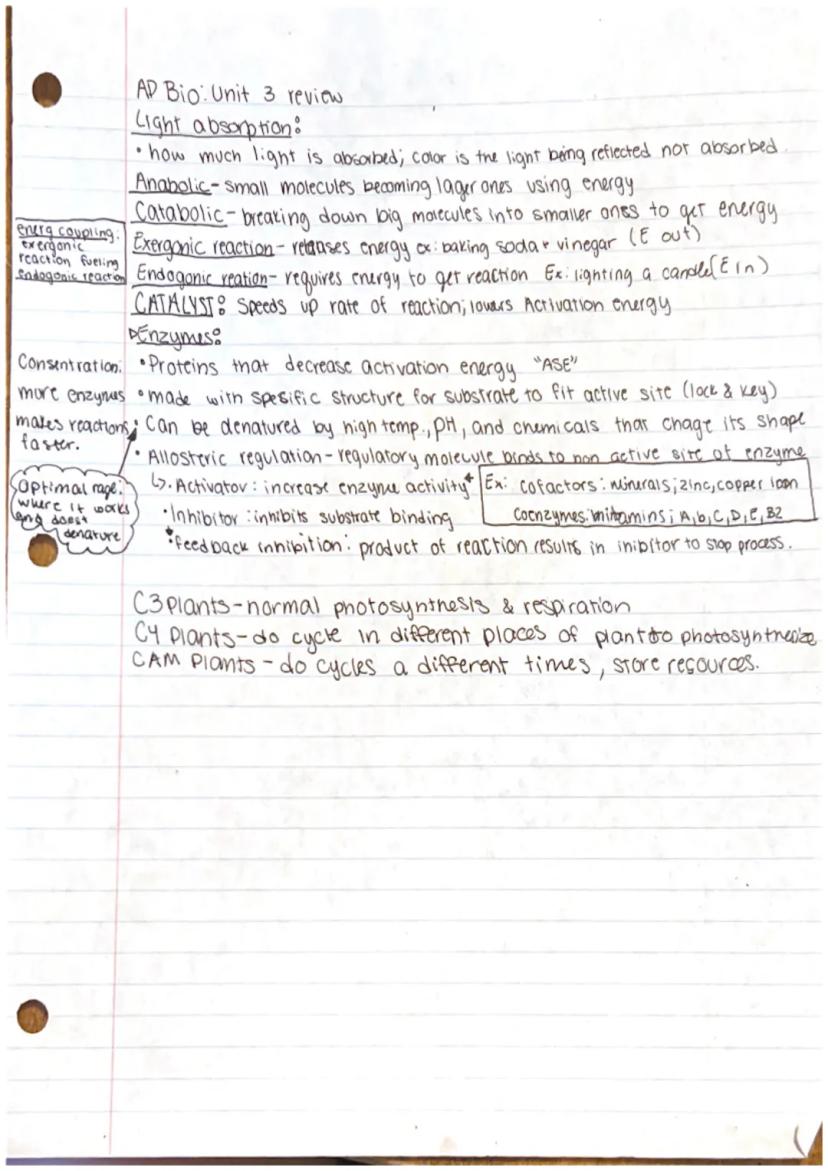 AP Bio: Unit 3 review
Light absorption:
• how much light is absorbed; color is the light being reflected not absorbed.
Anabolic - small molecules becoming lager ones using energy
Catabolic - breaking down big molecules into smaller ones to get energy
energ coupling:
exergonic
reaction fueling
endogonic reaction
Exergonic reaction - releases energy ex: baking soda + vinegar (E out)
Endogonic reation - requires energy to get reaction Ex: lighting a candle (E in)
CATALYST: Speeds up rate of reaction; lowers Activation energy
Enzymes:
Consentration:
more enzymes
makes reactions
faster.
• Proteins that decrease activation energy "ASE"
• made with spesific structure for substrate to fit active site (lock & key)
• Can be denatured by high temp., pH, and chemicals that chage its shape
• Allosteric regulation - regulatory molecule binds to non active site of enzyme
Optimal rage:
where it works
and doest
denature
↳ • Activator: increase enzyme activity*
Ex: cofactors: minerals; zinc, copper iron
coenzymes: vitamins; A, b, C, D, E, B2
• Inhibitor: inhibits substrate binding
* feedback inhibition: product of reaction results in inibitor to stop process.
C3 Plants - normal photosynthesis & respiration
C4 Plants - do cycle in different places of plant to photosynthesize
CAM Plants - do cycles a different times, store resources.